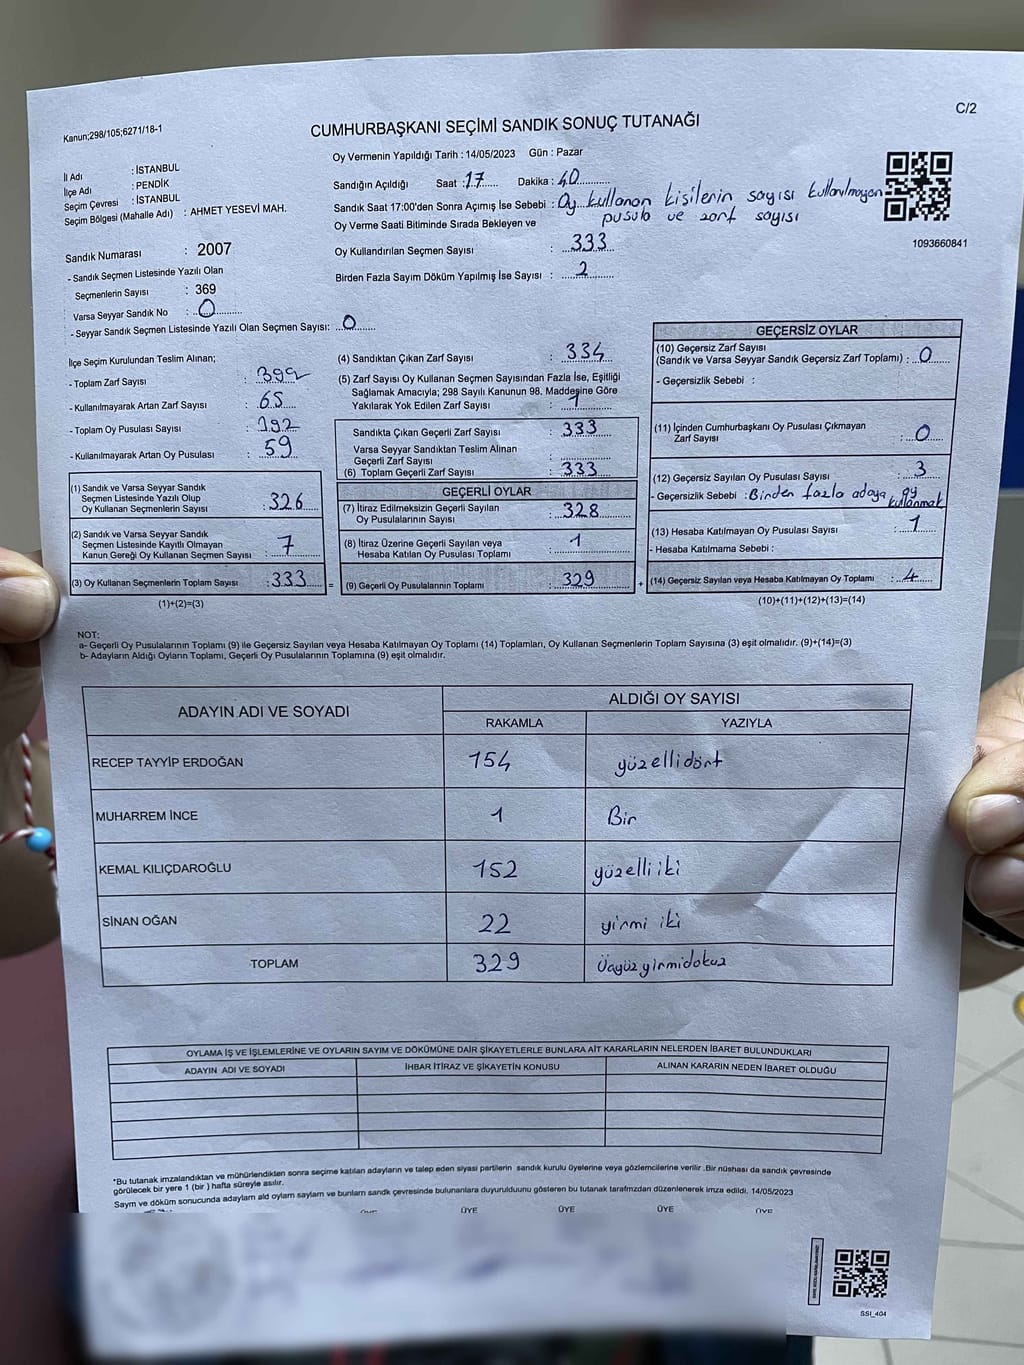 C/2
Kanun;298/105;6271/18-1
CUMHURBAŞKANI SEÇİMİ SANDIK SONUÇ TUTANAĞI
İl Adı : İSTANBUL
İlçe Adı : PENDİK
Seçim Çevresi : İSTANBUL
Seçim Bölgesi (Mahalle Adı) : AHMET YESEVİ MAH.
Sandık Numarası : 2007
- Sandık Seçmen Listesinde Yazılı Olan
Seçmenlerin Sayısı : 369
Varsa Seyyar Sandık No : 0
- Seyyar Sandık Seçmen Listesinde Yazılı Olan Seçmen Sayısı: 0
Oy Vermenin Yapıldığı Tarih : 14/05/2023 Gün : Pazar
Sandığın Açıldığı Saat : 17 Dakika : 40
Sandık Saat 17:00'den Sonra Açımış İse Sebebi : Oy kullanan kişilerin sayısı kullanılmayan
pusula ve zarf sayısı
Oy Verme Saati Bitiminde Sırada Bekleyen ve
Oy Kullandırılan Seçmen Sayısı : 333
Birden Fazla Sayım Döküm Yapılmış İse Sayısı : 2
1093660841
İlçe Seçim Kurulundan Teslim Alınan;
- Toplam Zarf Sayısı :
- Kullanılmayarak Artan Zarf Sayısı : 65
- Toplam Oy Pusulası Sayısı :
- Kullanılmayarak Artan Oy Pusulası : 59
(1) Sandık ve Varsa Seyyar Sandık
Seçmen Listesinde Yazılı Olup
Oy Kullanan Seçmenlerin Sayısı : 326
(2) Sandık ve Varsa Seyyar Sandık
Seçmen Listesinde Kayıtlı Olmayan
Kanun Gereği Oy Kullanan Seçmen Sayısı : 7
(3) Oy Kullanan Seçmenlerin Toplam Sayısı : 333 =
(1)+(2)=(3)
(4) Sandıktan Çıkan Zarf Sayısı : 334
(5) Zarf Sayısı Oy Kullanan Seçmen Sayısından Fazla İse, Eşitliği
Sağlamak Amacıyla; 298 Sayılı Kanunun 98. Maddesine Göre
Yakılarak Yok Edilen Zarf Sayısı : 1
Sandıkta Çıkan Geçerli Zarf Sayısı : 333
Varsa Seyyar Sandıktan Teslim Alınan
Geçerli Zarf Sayısı :
(6) Toplam Geçerli Zarf Sayısı : 333
GEÇERLİ OYLAR
(7) İtiraz Edilmeksizin Geçerli Sayılan
Oy Pusulalarının Sayısı : 328
(8) İtiraz Üzerine Geçerli Sayılan veya
Hesaba Katılan Oy Pusulası Toplamı : 1
(9) Geçerli Oy Pusulalarının Toplamı : 329 +
GEÇERSİZ OYLAR
(10) Geçersiz Zarf Sayısı
(Sandık ve Varsa Seyyar Sandık Geçersiz Zarf Toplamı) : 0
- Geçersizlik Sebebi :
(11) İçinden Cumhurbaşkanı Oy Pusulası Çıkmayan
Zarf Sayısı : 0
(12) Geçersiz Sayılan Oy Pusulası Sayısı : 3
- Geçersizlik Sebebi : Birden fazla adaya oy
kullanmak
(13) Hesaba Katılmayan Oy Pusulası Sayısı : 1
- Hesaba Katılmama Sebebi :
(14) Geçersiz Sayılan veya Hesaba Katılmayan Oy Toplamı : 4
(10)+(11)+(12)+(13)=(14)
NOT:
a- Geçerli Oy Pusulalarının Toplamı (9) ile Geçersiz Sayılan veya Hesaba Katılmayan Oy Toplamı (14) Toplamları, Oy Kullanan Seçmenlerin Toplam Sayısına (3) eşit olmalıdır. (9)+(14)=(3)
b- Adayların Aldığı Oyların Toplamı, Geçerli Oy Pusulalarının Toplamına (9) eşit olmalıdır.
ADAYIN ADI VE SOYADI ALDIĞI OY SAYISI
RAKAMLA YAZIYLA
RECEP TAYYİP ERDOĞAN 154 yüzellidört
MUHARREM İNCE 1 Bir
KEMAL KILIÇDAROĞLU 152 yüzelli iki
SİNAN OĞAN 22 yirmi iki
TOPLAM 329 Üçyüzyirmidokuz
OYLAMA İŞ VE İŞLEMLERİNE VE OYLARIN SAYIM VE DÖKÜMÜNE DAİR ŞİKAYETLERLE BUNLARA AİT KARARLARIN NELERDEN İBARET BULUNDUKLARI
ADAYIN ADI VE SOYADI İHBAR İTİRAZ VE ŞİKAYETİN KONUSU ALINAN KARARIN NEDEN İBARET OLDUĞU
*Bu tutanak imzalandıktan ve mühürlendikten sonra seçime katılan adayların ve talep eden siyasi partilerin sandık kurulu üyelerine veya gözlemcilerine verilir .Bir nüshası da sandık çevresinde
görülecek bir yere 1 (bir ) hafta süreyle asılır.
Sayım ve döküm sonucunda adayların ald oyların sayılam ve bunların sandk çevresinde bulunanlara duyurulduunu gösteren bu tutanak tarafmzdan düzenlenerek imza edildi. 14/05/2023
ÜYE ÜYE ÜYE ÜYE ÜYE
SSI_404